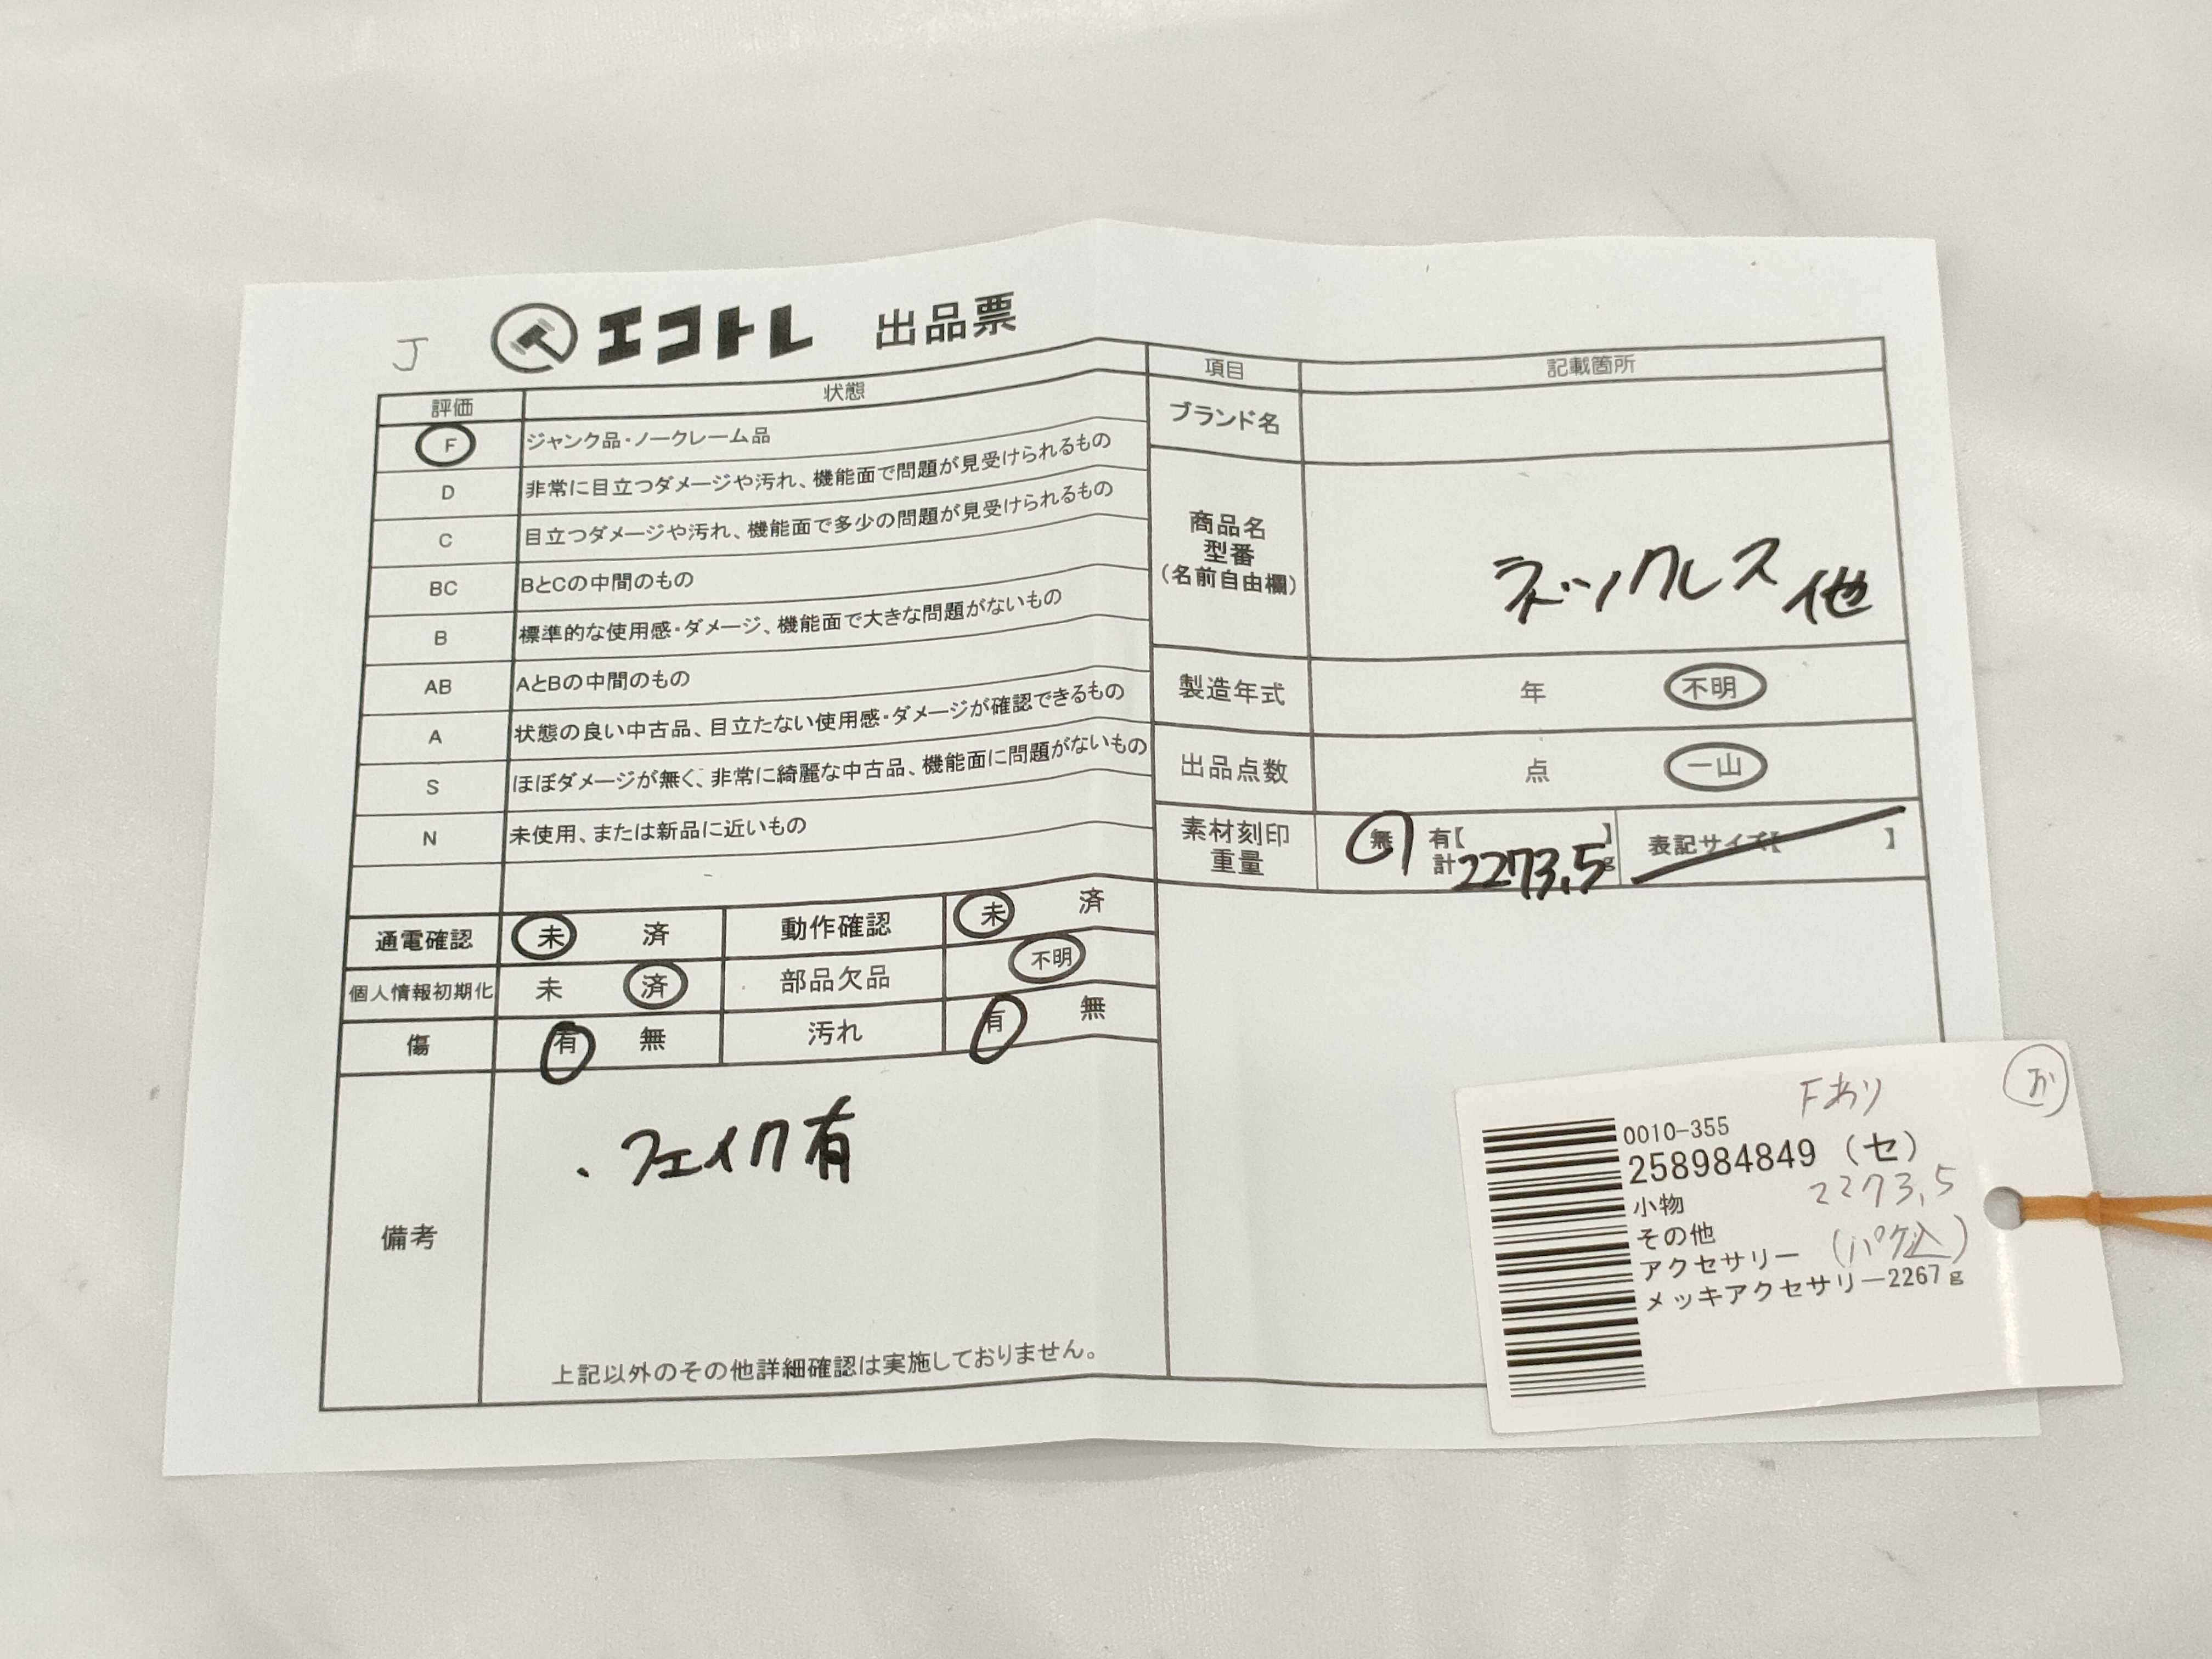 J エコトレ 出品票
評価 状態
F ジャンク品・ノークレーム品
D 非常に目立つダメージや汚れ、機能面で問題が見受けられるもの
C 目立つダメージや汚れ、機能面で多少の問題が見受けられるもの
BC BとCの中間のもの
B 標準的な使用感・ダメージ、機能面で大きな問題がないもの
AB AとBの中間のもの
A 状態の良い中古品、目立たない使用感・ダメージが確認できるもの
S ほぼダメージが無く、非常に綺麗な中古品、機能面に問題がないもの
N 未使用、または新品に近いもの
通電確認 未 済 動作確認 未 済
個人情報初期化 未 済 部品欠品 不明
傷 有 無 汚れ 有 無
備考
・フェイク有
上記以外のその他詳細確認は実施しておりません。
項目 記載箇所
ブランド名
商品名
型番
(名前自由欄)
ネックレス他
製造年式 年 不明
出品点数 点 一山
素材刻印
重量
無 有【 】
計2273.5g
表記サイズ【 】
Fあり
か
0010-355
258984849 (セ)
2273.5
小物
その他
アクセサリー (パケ込)
メッキアクセサリー2267g